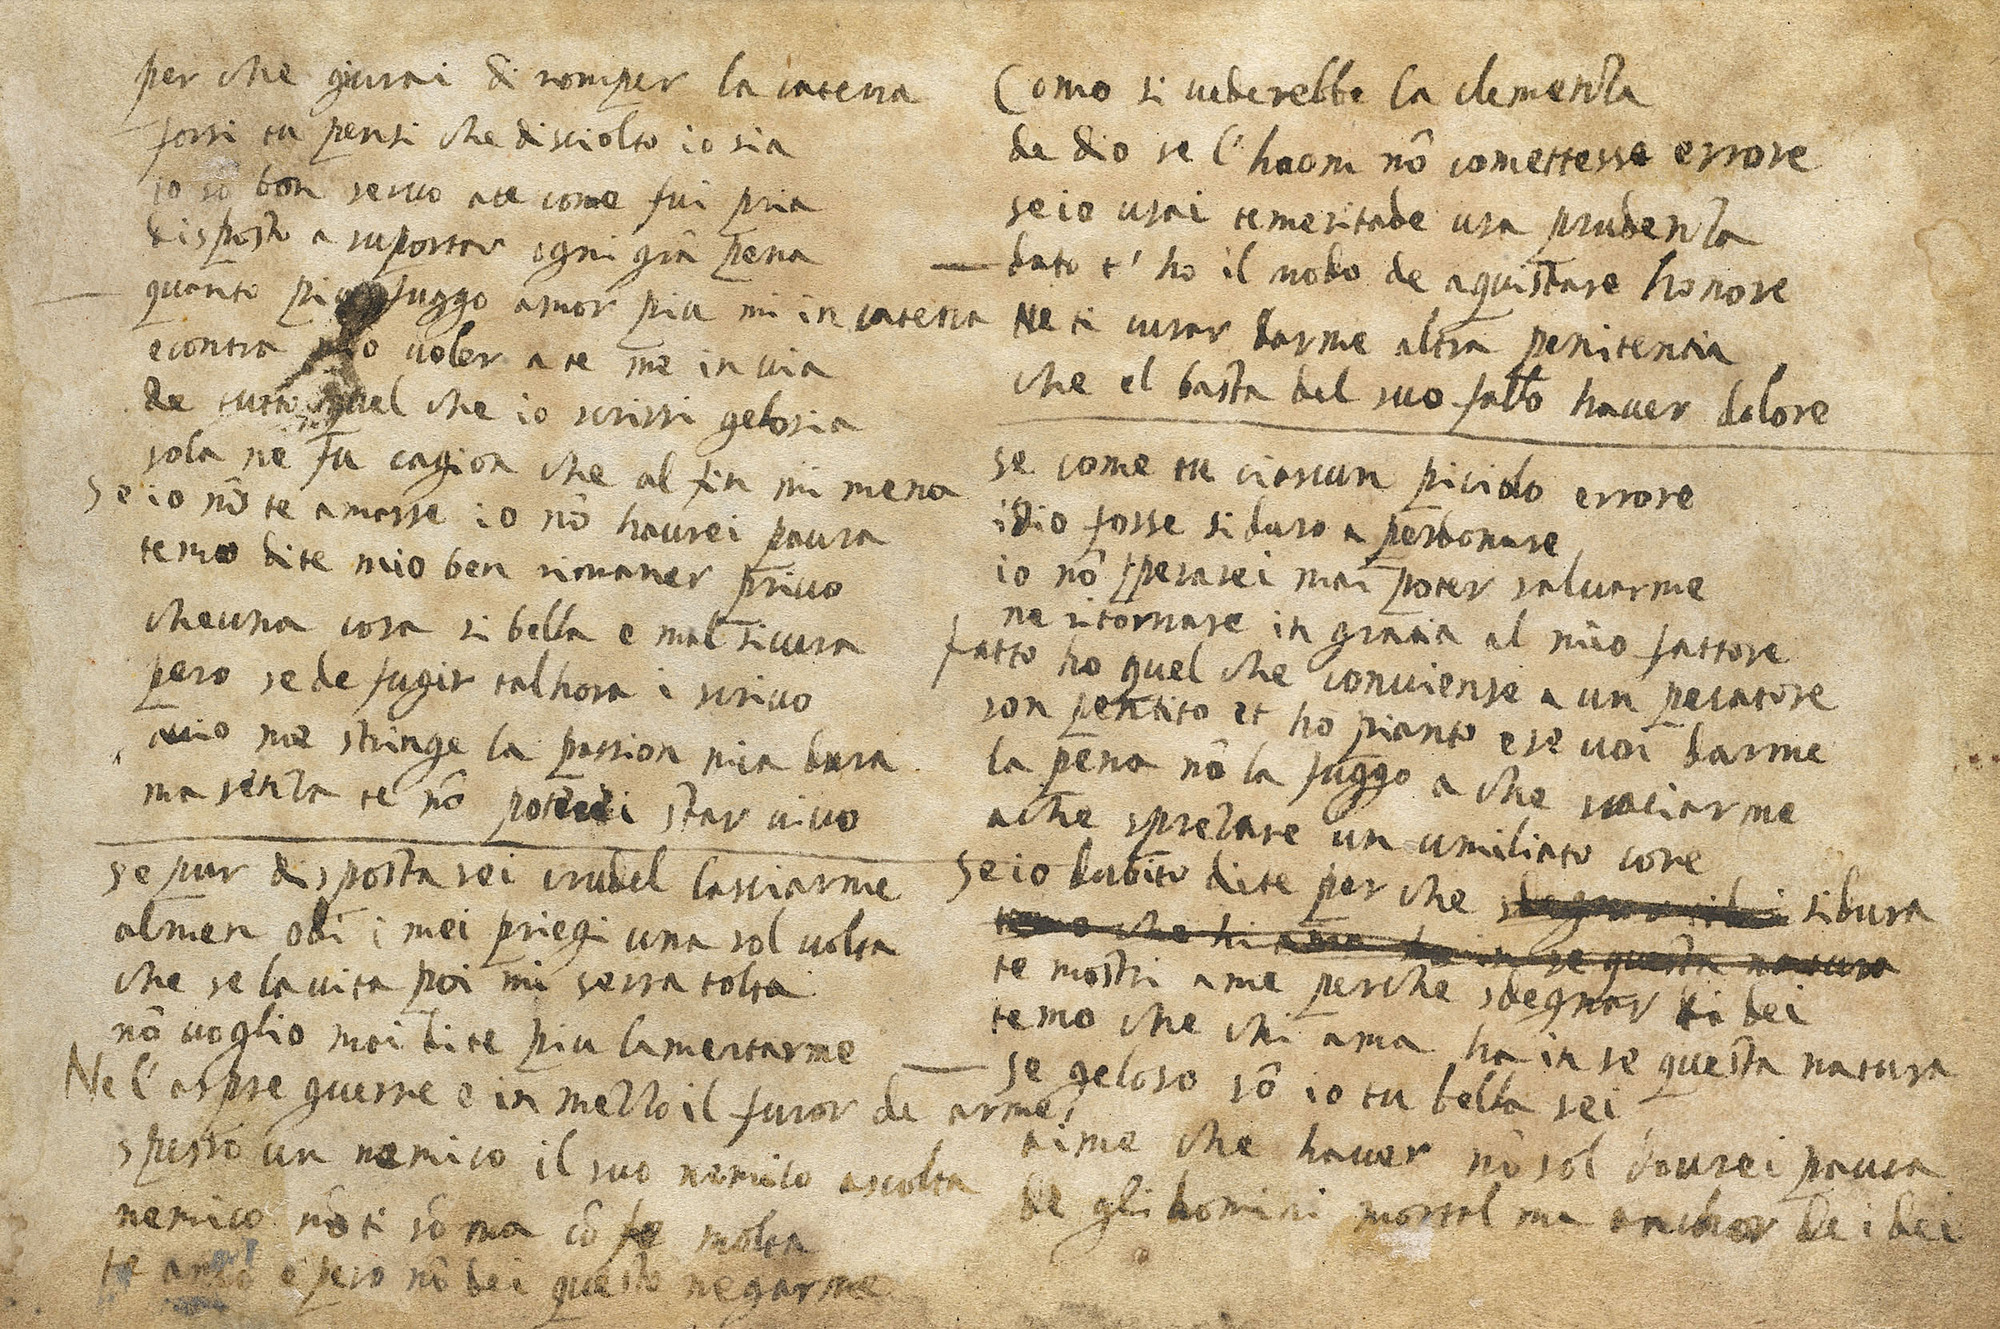 per che giurai di romper la catena
forsi tu pensi che disciolto io sia
io sō bon servo a te come fui pria
disposto a suportar ogni grā pena
quanto piu fuggo amor piu mi incatena
econtra mio voler a te me invia
de tutto quel che io scrissi gelosia
sola ne fu cagion che al fin mi mena
se io nō te amasse io nō haurei paura
temo di te mio ben rimaner privo
che una cosa si bella e mal sicura
pero se de fugir talhora i scrivo
me stringe la passion mia dura
ma senza te nō potrei star vivo
se pur disposta sei crudel lasciarme
almen odi i mei priegi una sol volta
che se la vita poi mi serra tolta
nō voglio mai di te piu lamentarme
Ne l'aspre guerre e in mezzo il furor de arme
spesso un nemico il suo nemico ascolta
nemico nō ti sō ma cō fe molta
te amo e pero nō dei questo negarme
Como si vederebbe la clemenza
de dio se l'haom nō comettesse errore
se io usai temeritade usa prudenza
dato t'ho il modo de aquistare honore
Ne ti curar darme altra penitentia
che el basta del suo fallo haver dolore
se come tu ciascun picciolo errore
idio fosse si duro a perdonare
io nō sperarei mai poter salvarme
ne ritornare in gratia al mio fattore
fatto ho quel che conviense a un pecatore
son pentito et ho pianto e se voi darme
la pena nō la fuggo a che scaciarme
a che sprezare un umiliato core
se io dubito di te per che si dura
temo che chi ama ha in se questa natura
te mostri a me perche sdegnar ti dei
temo che chi ama ha in se questa natura
se geloso sō io tu bella sei
aime che haver nō sol dourei paura
de gli homini mortal ma anchor de i dei